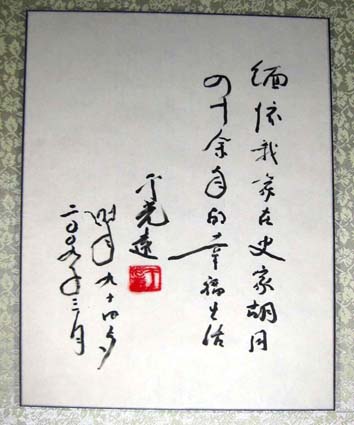 缅怀我家在史家胡同
四十余年的幸福生活
于光远
时年九十四岁
二〇〇九年三月